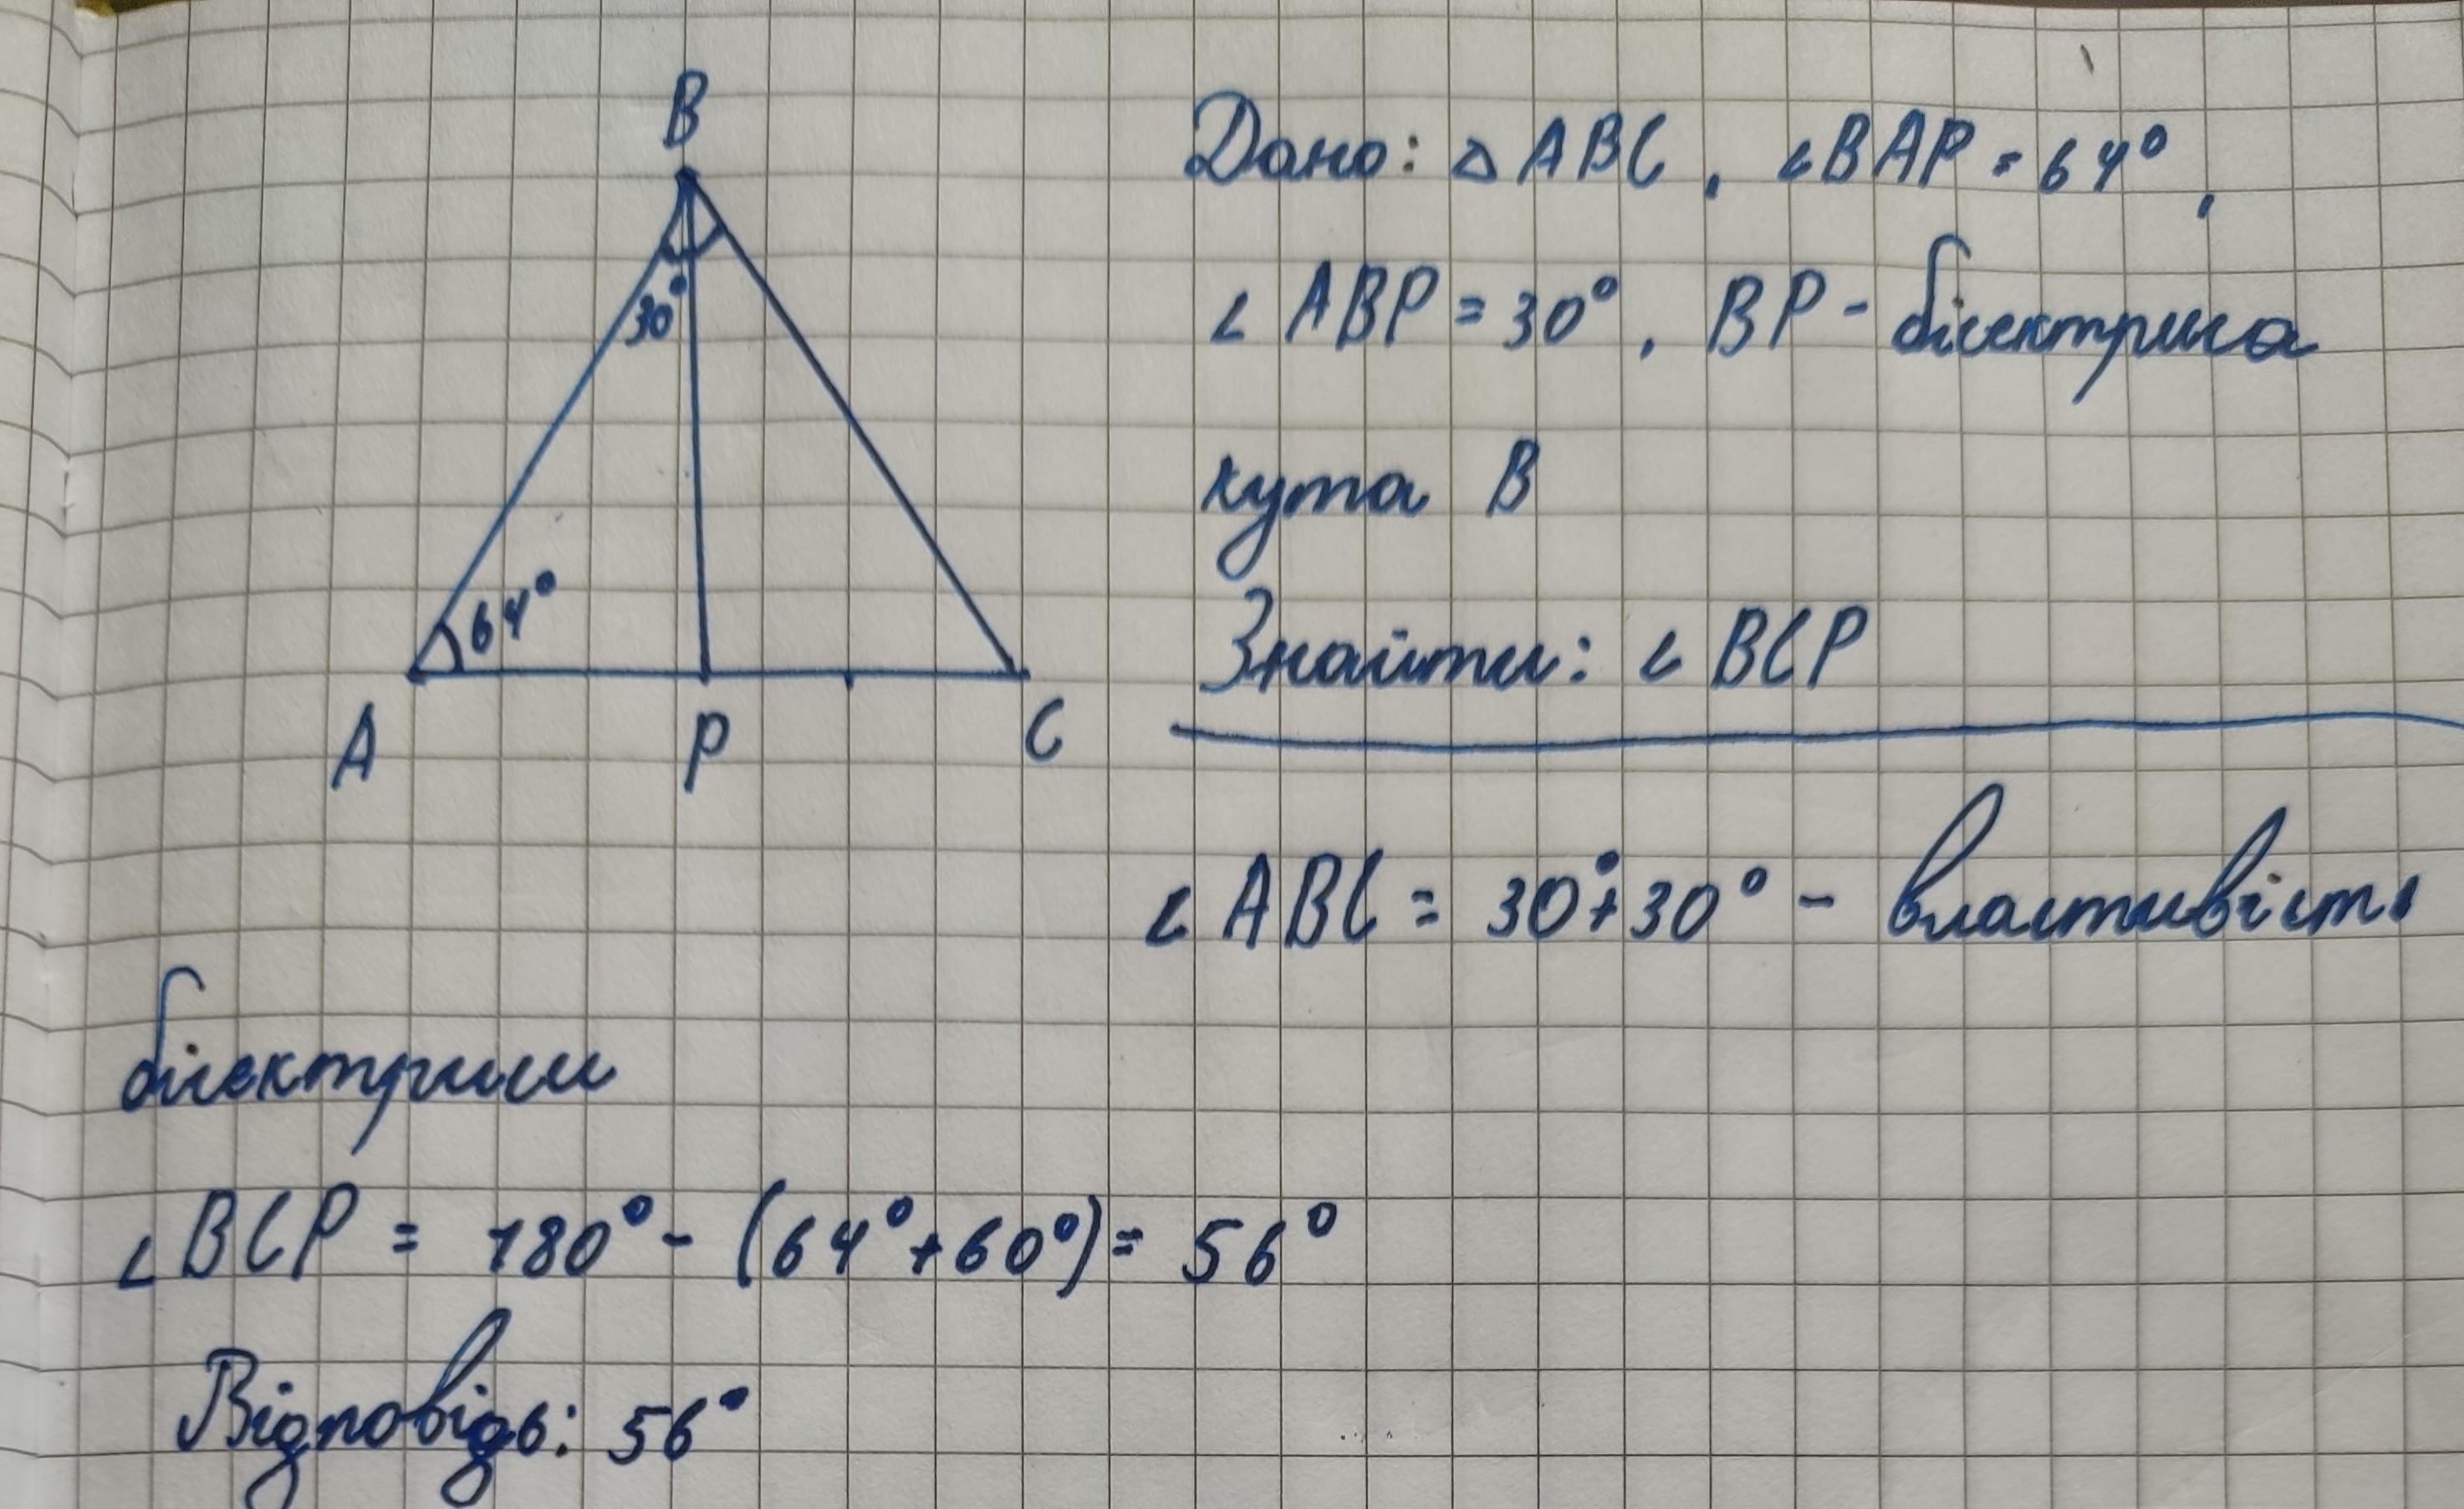 B
Дано: △ ABC, ∠BAP = 64°,
30°
∠ ABP = 30°, BP - бісектриса
кута B
64°
Знайти: ∠ BCP
A P C
∠ ABC = 30°+30° - властивість
бісектриси
∠ BCP = 180° - (64°+60°) = 56°
Відповідь: 56°